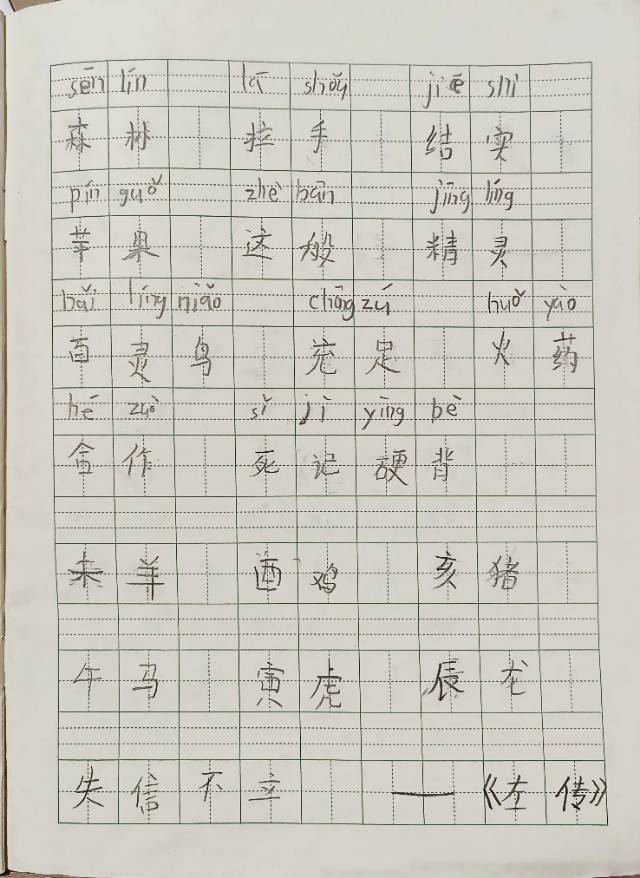 sēn lín lā shǒu jiē shí
森林 拉手 结实
pín guǒ zhè bān jīng líng
苹果 这般 精灵
bǎi líng niǎo chōng zú huǒ yào
百灵鸟 充足 火药
hé zuò sǐ jì yìng bèi
合作 死记硬背
未羊 酉鸡 亥猪
午马 寅虎 辰龙
失信不立 ——《左传》